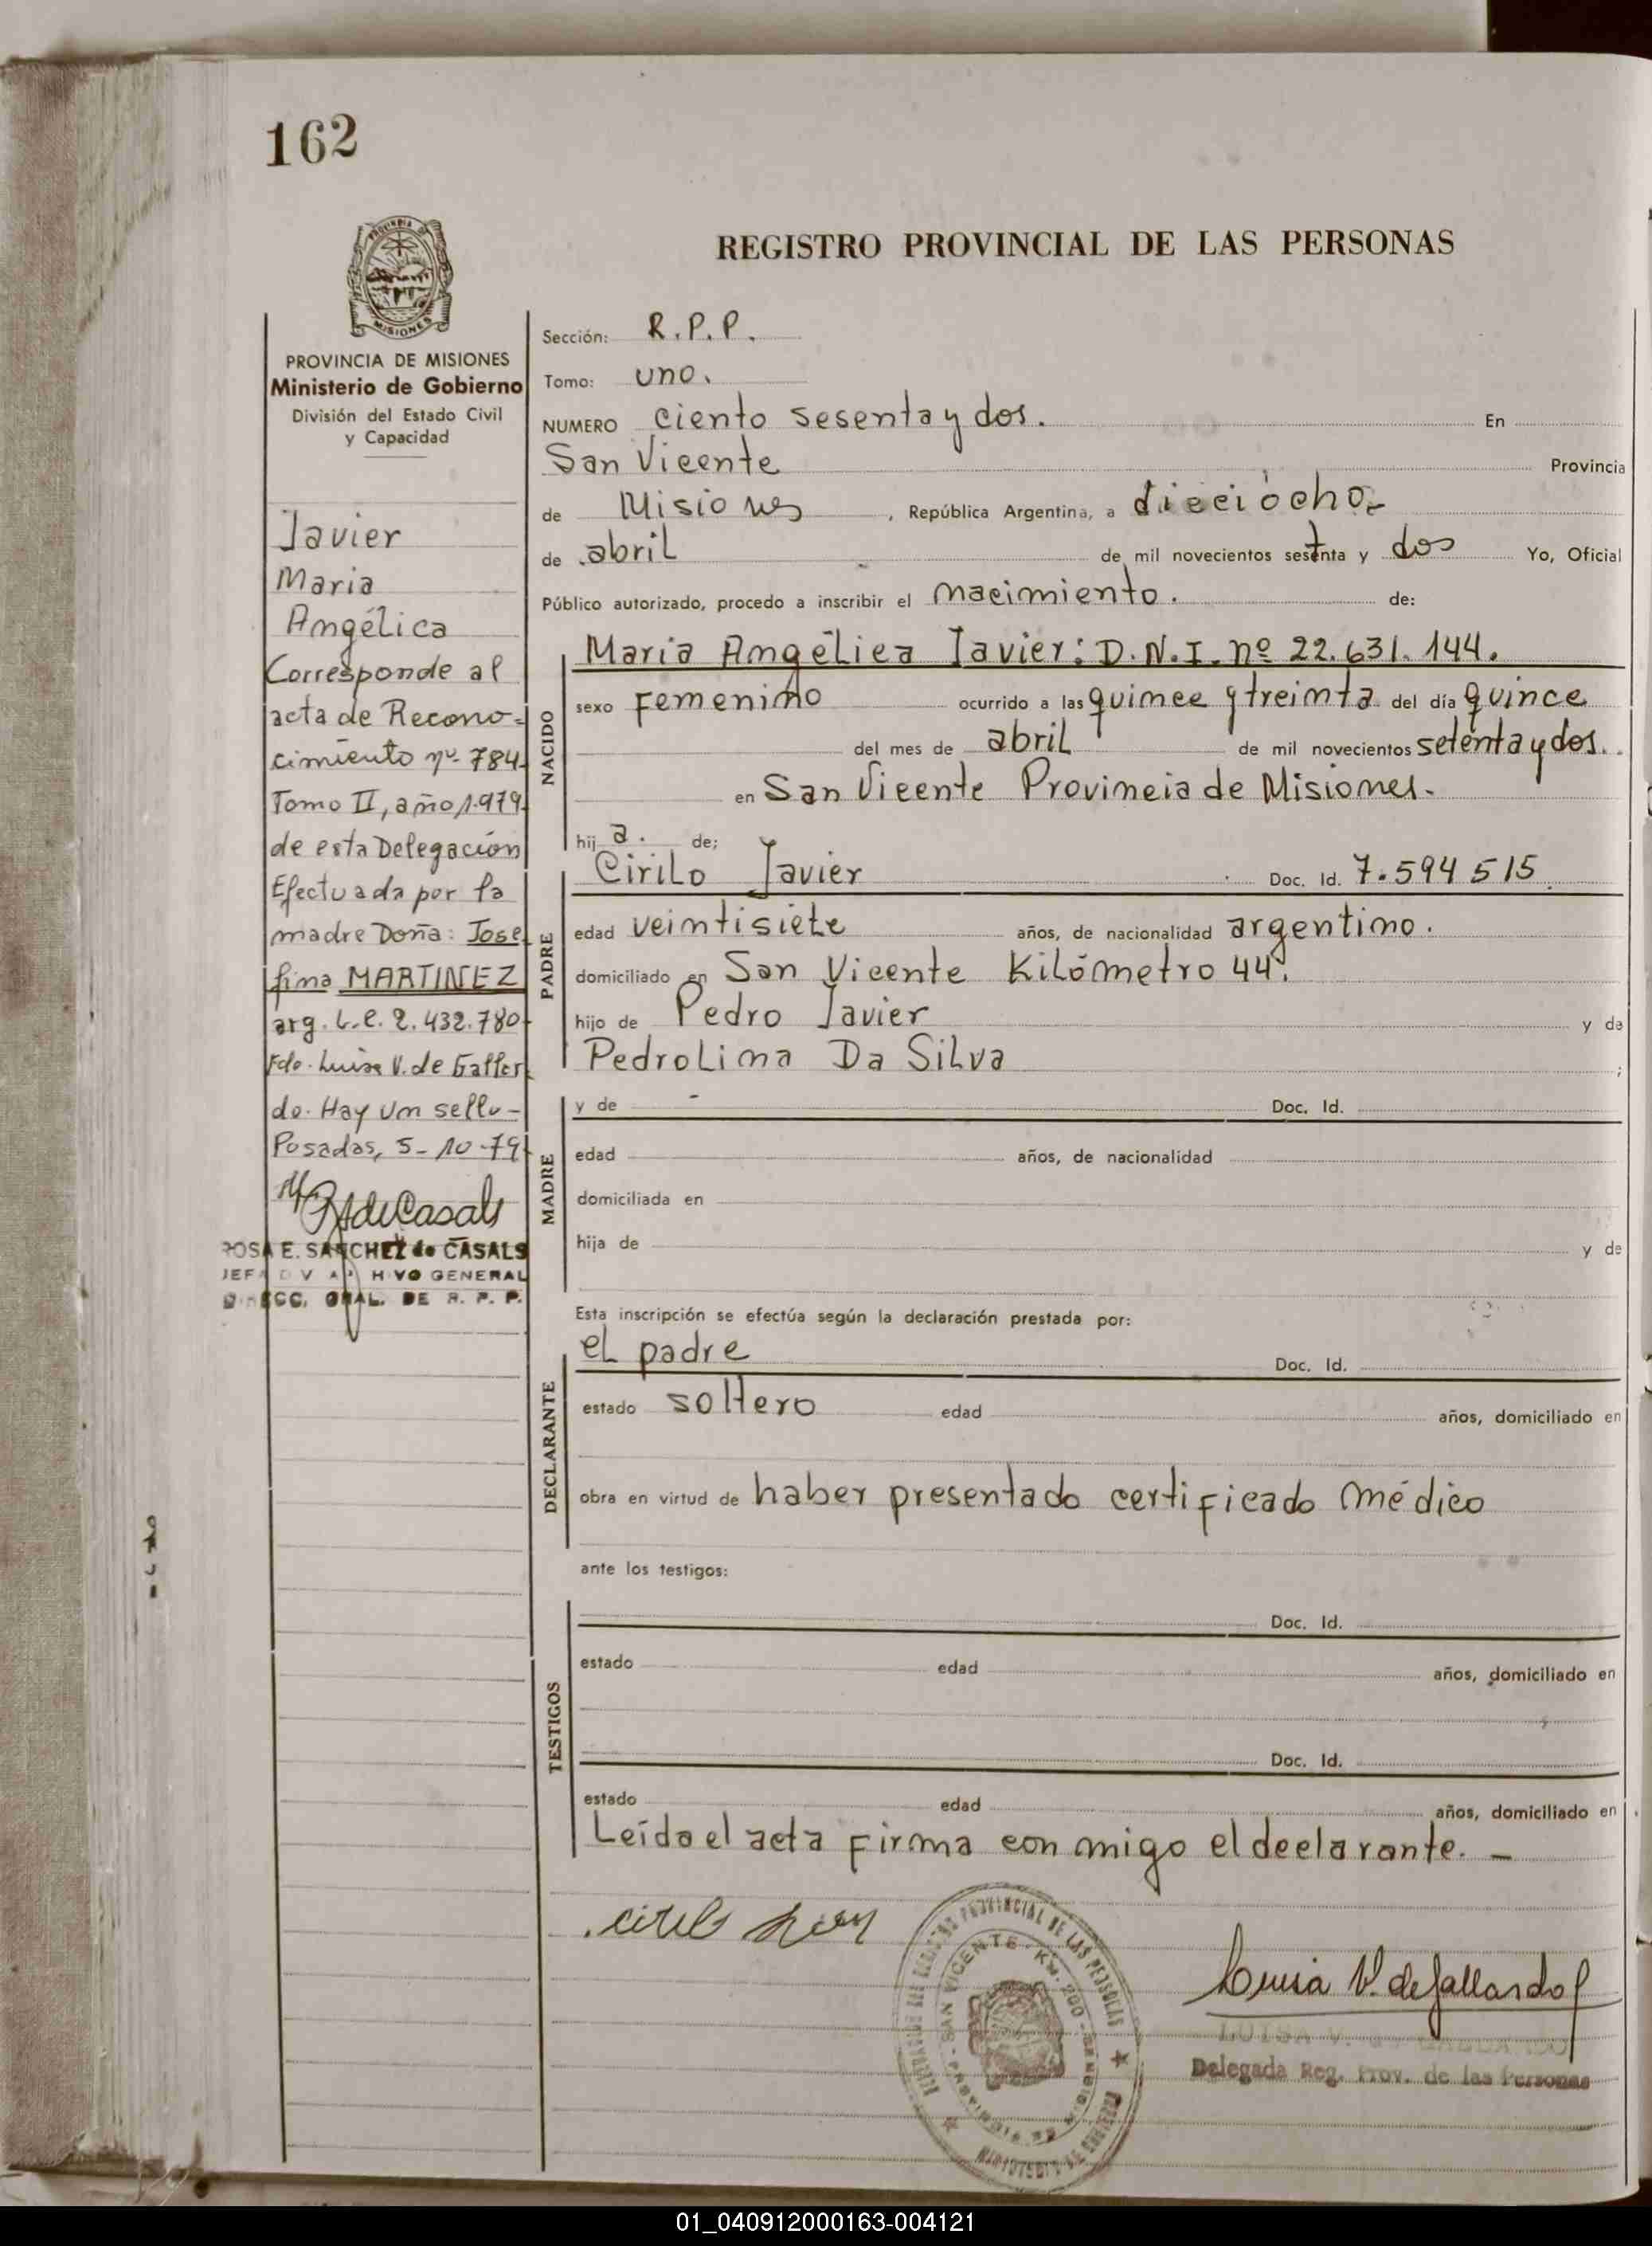 162
PROVINCIA DE
MISIONES
PROVINCIA DE MISIONES
Ministerio de Gobierno
División del Estado Civil
y Capacidad
Javier
Maria
Angélica
Corresponde al
acta de Recono=
cimiento nº 784-
Tomo II, año 1.979-
de esta Delegación
Efectuada por la
madre Doña: Jose
fina MARTINEZ
arg. L.C. 2.432.780-
Fdo. Luisa V. de Gallar
do. Hay un sello-
Posadas, 5-10-79-
ROSA E. SANCHEZ de CASALS
HIVO GENERAL
GRAL. DE R. P. P.
REGISTRO PROVINCIAL DE LAS PERSONAS
Sección: R.P.P.
Tomo: uno.
NUMERO ciento sesenta y dos. En
San Vicente Provincia
de Misiones, República Argentina, a dieciocho-
de abril de mil novecientos setenta y dos Yo, Oficial
Público autorizado, procedo a inscribir el nacimiento. de:
NACIDO
Maria Angélica Javier: D.N.I. nº 22.631.144.
sexo Femenino ocurrido a las quince y treinta del día quince
del mes de abril de mil novecientos setenta y dos.
en San Vicente Provincia de Misiones-
hij a. de;
PADRE
Cirilo Javier Doc. Id. 7.594 515
edad veintisiete años, de nacionalidad argentino.
domiciliado en San Vicente Kilómetro 44.
hijo de Pedro Javier y de
Pedrolina Da Silva ;
MADRE
y de - Doc. Id.
edad años, de nacionalidad
domiciliada en
hija de y de
Esta inscripción se efectúa según la declaración prestada por:
DECLARANTE
el padre Doc. Id.
estado soltero edad años, domiciliado en
obra en virtud de haber presentado certificado médico
ante los testigos:
TESTIGOS
Doc. Id.
estado edad años, domiciliado en
Doc. Id.
estado edad años, domiciliado en
Leída el acta firma con migo el declarante. -
PROVINCIAL DE LAS PERSONAS
SAN VICENTE - KM. 200
Luisa V. de Gallardo
LUISA V. de GALLARDO
Delegada Reg. Prov. de las Personas
01_040912000163-004121